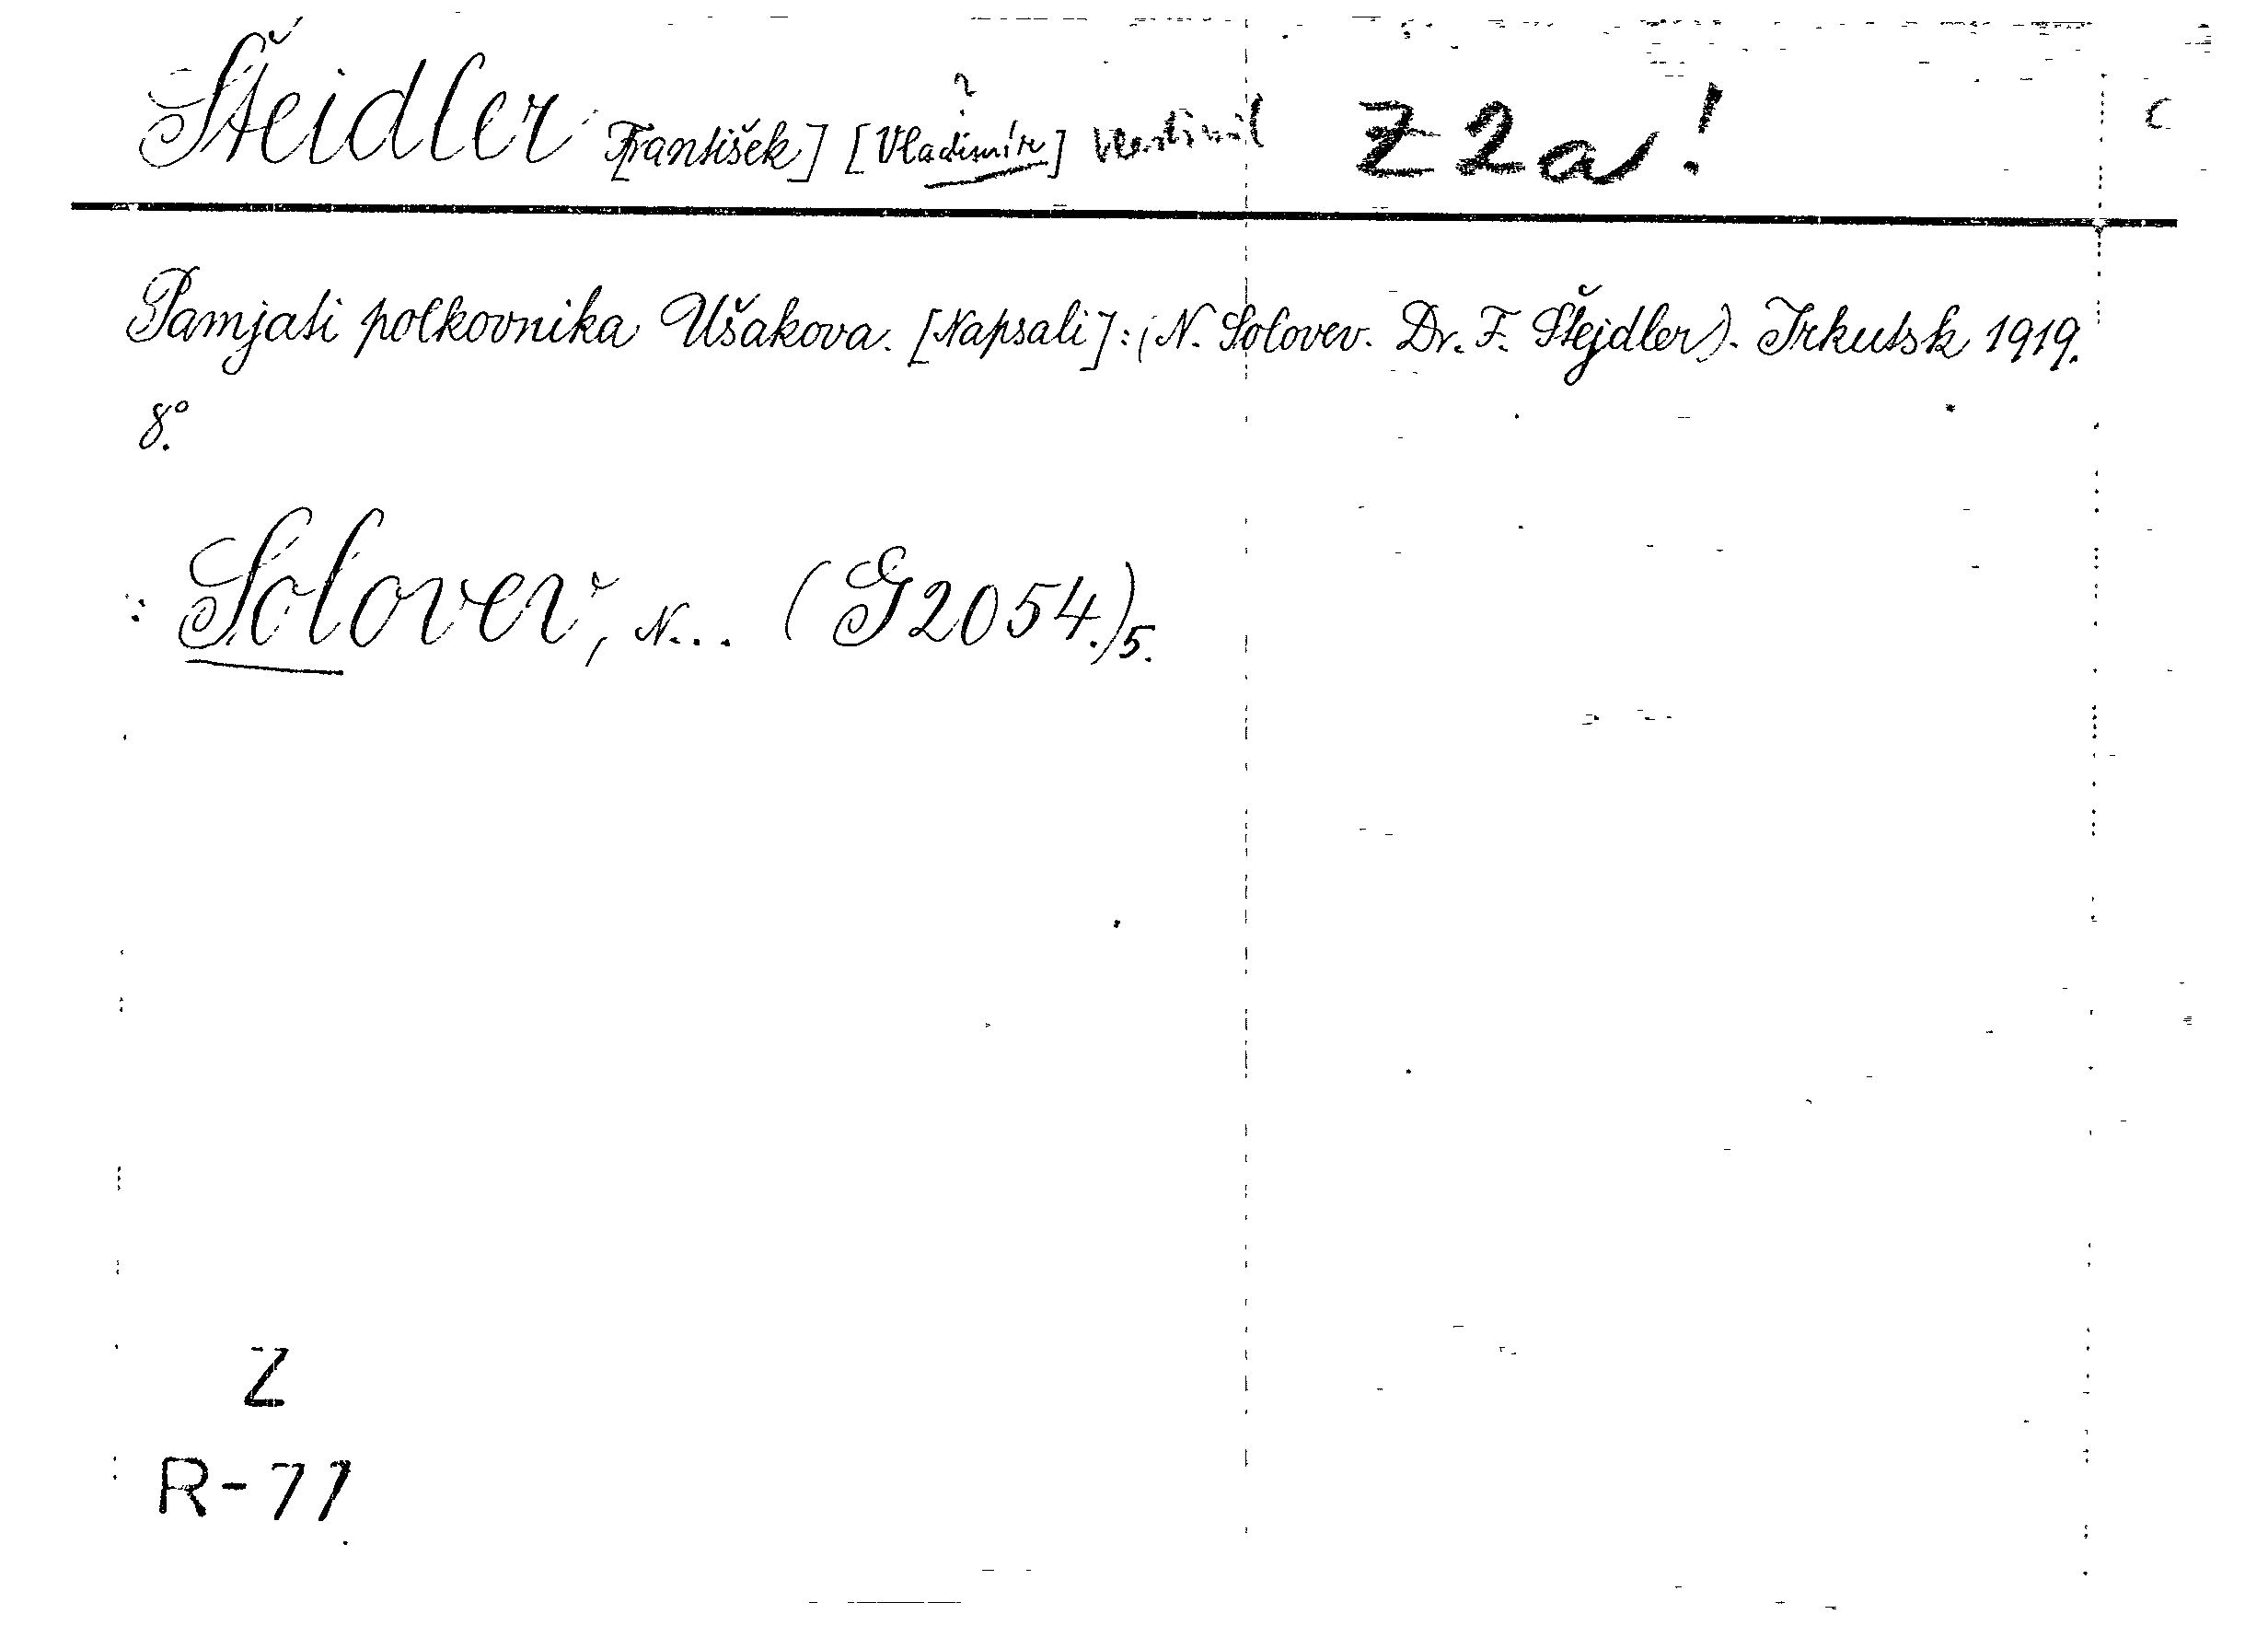 Šteidler F[rantišek] [Vladimír] ? Vlastimil Z2a!
Pamjati polkovnika Ušakova. [Napsali]: (N. Solovev. Dr. F. Štejdler). Irkutsk 1919.
8.°
: Solovev, N... (G2054.)5.
Z
R-77